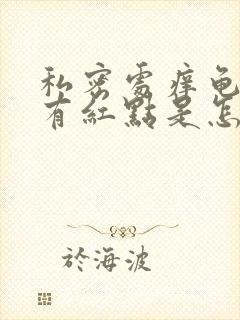 私密處痒龟
有紅點是怎
於海波